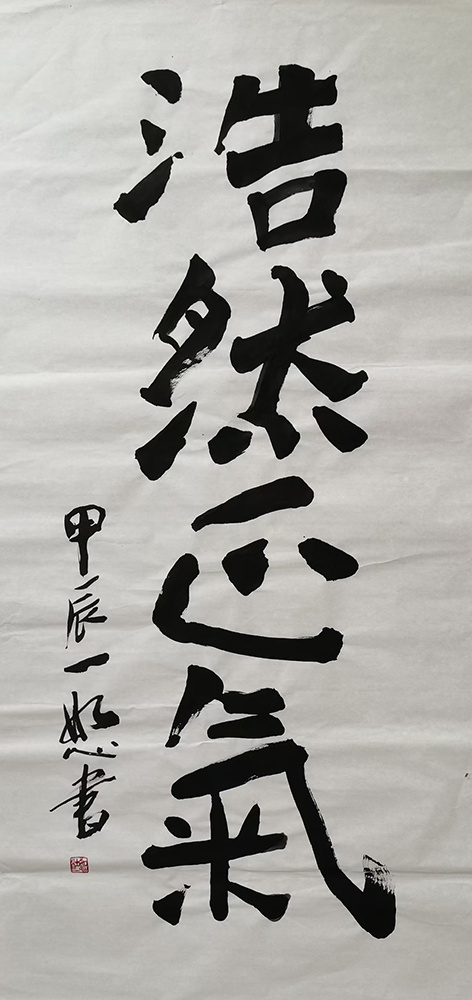 浩然正氣
甲辰一恕書